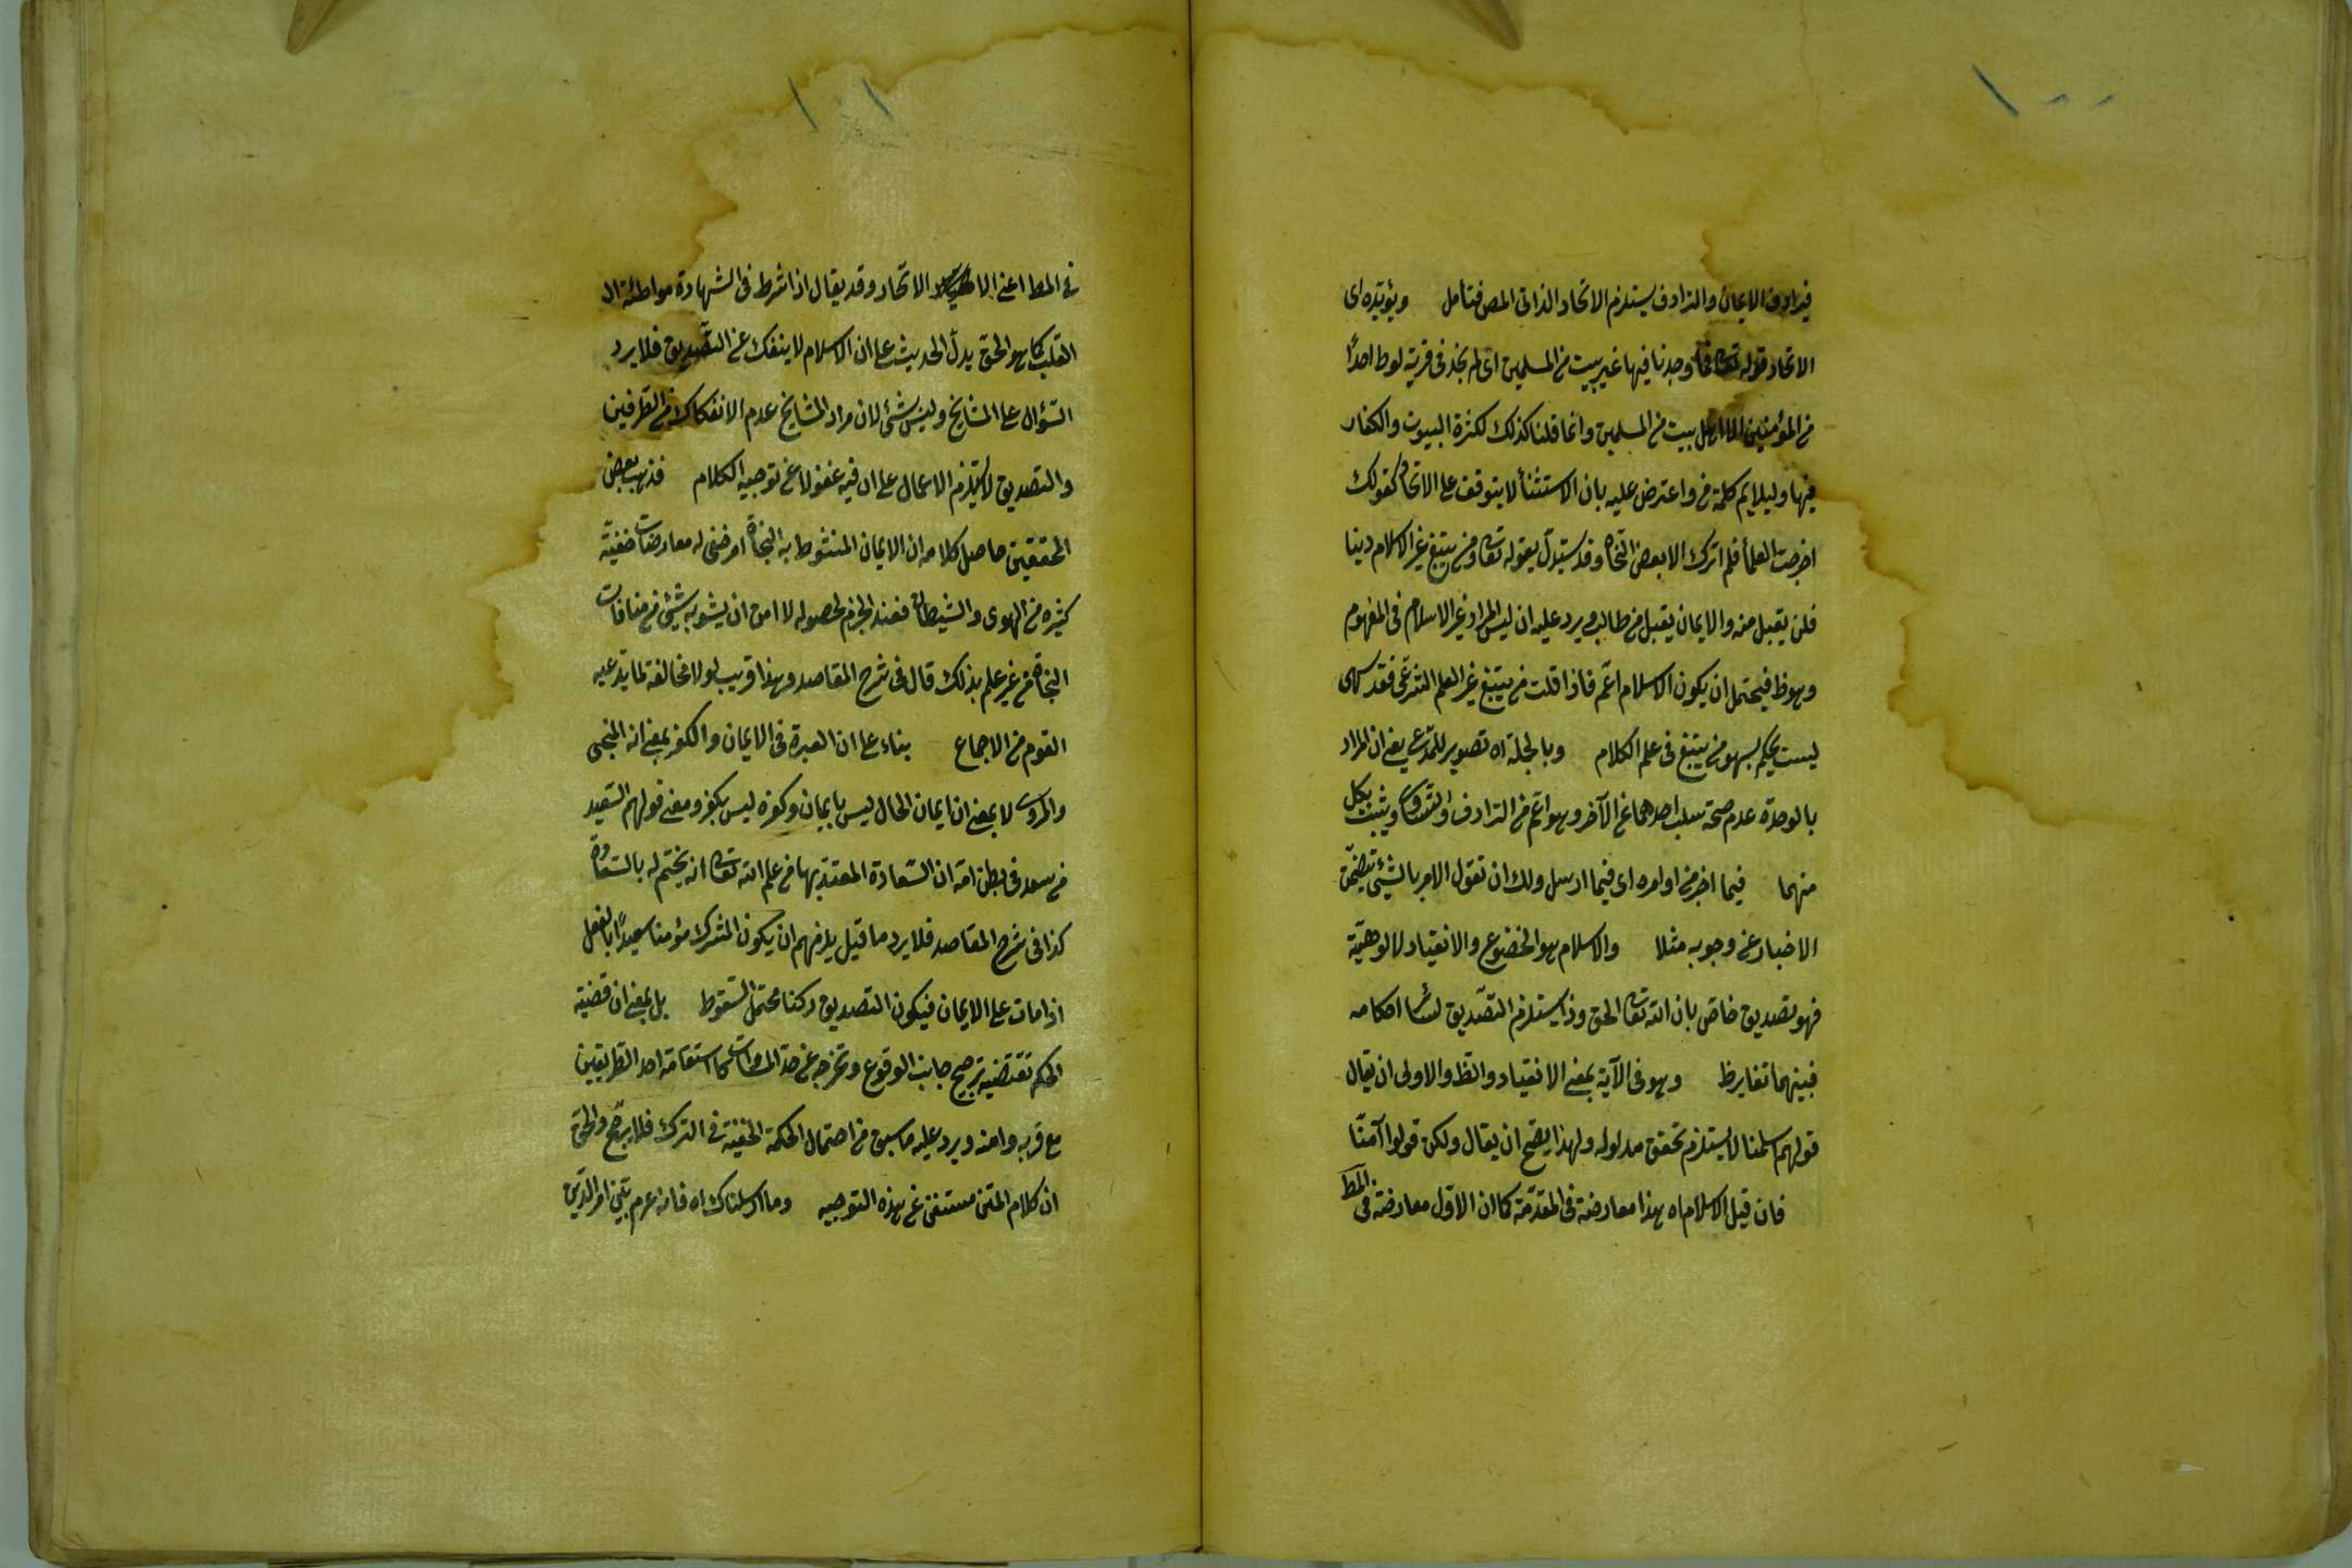 ١٠٠
فيرادف الايمان والترادف يستلزم الاتحاد الذاتى المص فتأمل ويؤيده اى
الاتحاد قوله تعالى فما وجدنا فيها غير بيت من المسلمين اى لم نجد فى قرية لوط احدًا
من المؤمنين الا اهل بيت من المسلمين وانما قلنا كذلك لكثرة البيوت والكفار
فيها وليلايم كلمة من واعترض عليه بان الاستثنأ لا يتوقف على الاتحاد كقولك
اخرجت العلمأ فلم اترك الا بعض النحاة وقد يستدل بقوله تعالى ومن يبتغ غير الاسلام دينا
فلن يقبل منه والايمان يقبل من طالبه ويرد عليه ان ليس المراد غير الاسلام فى المفهوم
وهو ظ فيحتمل ان يكون الاسلام اعم فاذا قلت من يبتغ غير العلم الشرعى فقد سهى
لست تحكم بسهو من يبتغ فى علم الكلام وبالجملة اه تصوير للمدعى يعنى ان المراد
بالوحدة عدم صحة سلب احدهما عن الآخر وهو اعم من الترادف والتساوى ويثبت بكل
منهما فيما اخبر من اوامره اى فيما ارسل ولك ان تقول الامر بالشئ يتضمن
الاخبار عن وجوبه مثلا والاسلام هو الخضوع والانقياد لالوهيّة
فهو تصديق خاص بان الله تعالى الحق وذا يستلزم التصديق لسائر احكامه
فبينهما تغاير ظ وهو فى الآية بمعنى الانقياد والظ والاولى ان يقال
قولهم اسلمنا لا يستلزم تحقق مدلوله ولهذا يصح ان يقال ولكن قولوا آمنّا
فان قيل الاسلام اه هذا معارضة فى المقدّمة كما ان الاوّل معارضة فى المط
١٠١
فى المط اعنى الاتحاد وقد يقال اذا شرط فى الشهادة مواطئة ال
القلب كما هو الحق يدل الحديث على ان الاسلام لا ينفك عن التصديق فلا يرد
السّؤال على المشايخ وليس بشئ لان مراد المشايخ عدم الانفكاك من الطرفين
والتصديق لا يستلزم الاعمال على ان فيه غفولا عن توجيه الكلام فذهب بعض
المحققين حاصل كلامه ان الايمان المنوط به النجاة امر خفى له معارضات خفيّة
كثيره من الهوى والشيطان فعند الجزم لحصوله لا امن ان يشوبه شئ من منافات
النجاة من غير علم بذلك قال فى شرح المقاصد وهذا قريب لولا مخالفة لما يدعيه
القوم من الاجماع بناء على ان العبرة فى الايمان والكفر بمعنى انه المنجى
لا بمعنى ان ايمان الحال ليس بايمان وكفره ليس بكفر ومعنى قولهم السّعيد
من سعد فى بطن امه ان السّعادة المعتد بها من علم الله تعالى انه يختم له بالسّعادة
كذا فى شرح المقاصد فلا يرد ما قيل يلزمهم ان يكون المشرك مؤمنا سعيدًا بالفعل
اذا مات على الايمان فيكون التصديق ركنا محتمل السّقوط بل بمعنى ان قضيّة
الحكم تقتضيه ترجيح جانب الوقوع وتخرجه عن حد المساوات كاستقامة احد الطريقين
مع قربه وامنه ويرد عليه ما سبق من احتمال الحكمة الخفيّة فى الترك فلا يرجح والحق
ان كلام المتن مستغن عن هذه التوجيه وما ارسلناك اه فانه عرم بيّن امر الدّين